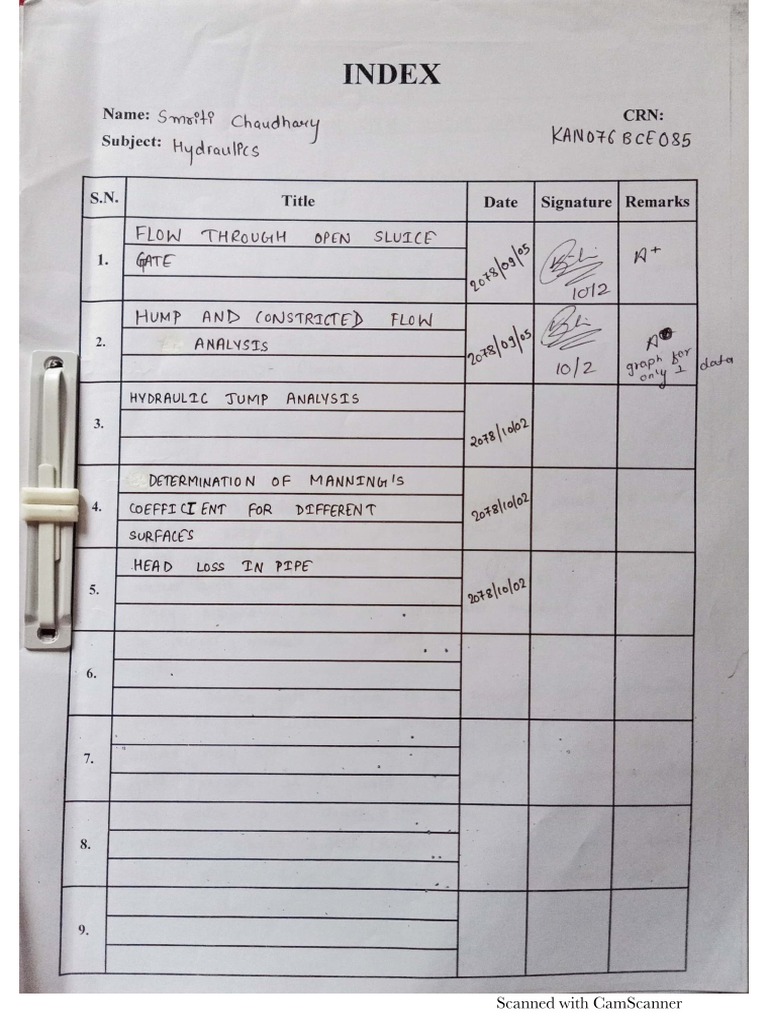 INDEX
Name: Smriti Chaudhary
CRN:
KAN076BCE085
Subject: Hydraulics
S.N. Title Date Signature Remarks
1. FLOW THROUGH OPEN SLUICE
GATE
2078/09/05
10/2
A+
2. HUMP AND CONSTRICTED FLOW
ANALYSIS
2078/09/05
10/2
A
graph for
only 1 data
3. HYDRAULIC JUMP ANALYSIS
2078/10/02
4. DETERMINATION OF MANNING'S
COEFFICIENT FOR DIFFERENT
SURFACES
2078/10/02
5. HEAD LOSS IN PIPE
2078/10/02
6.
7.
8.
9.
Scanned with CamScanner